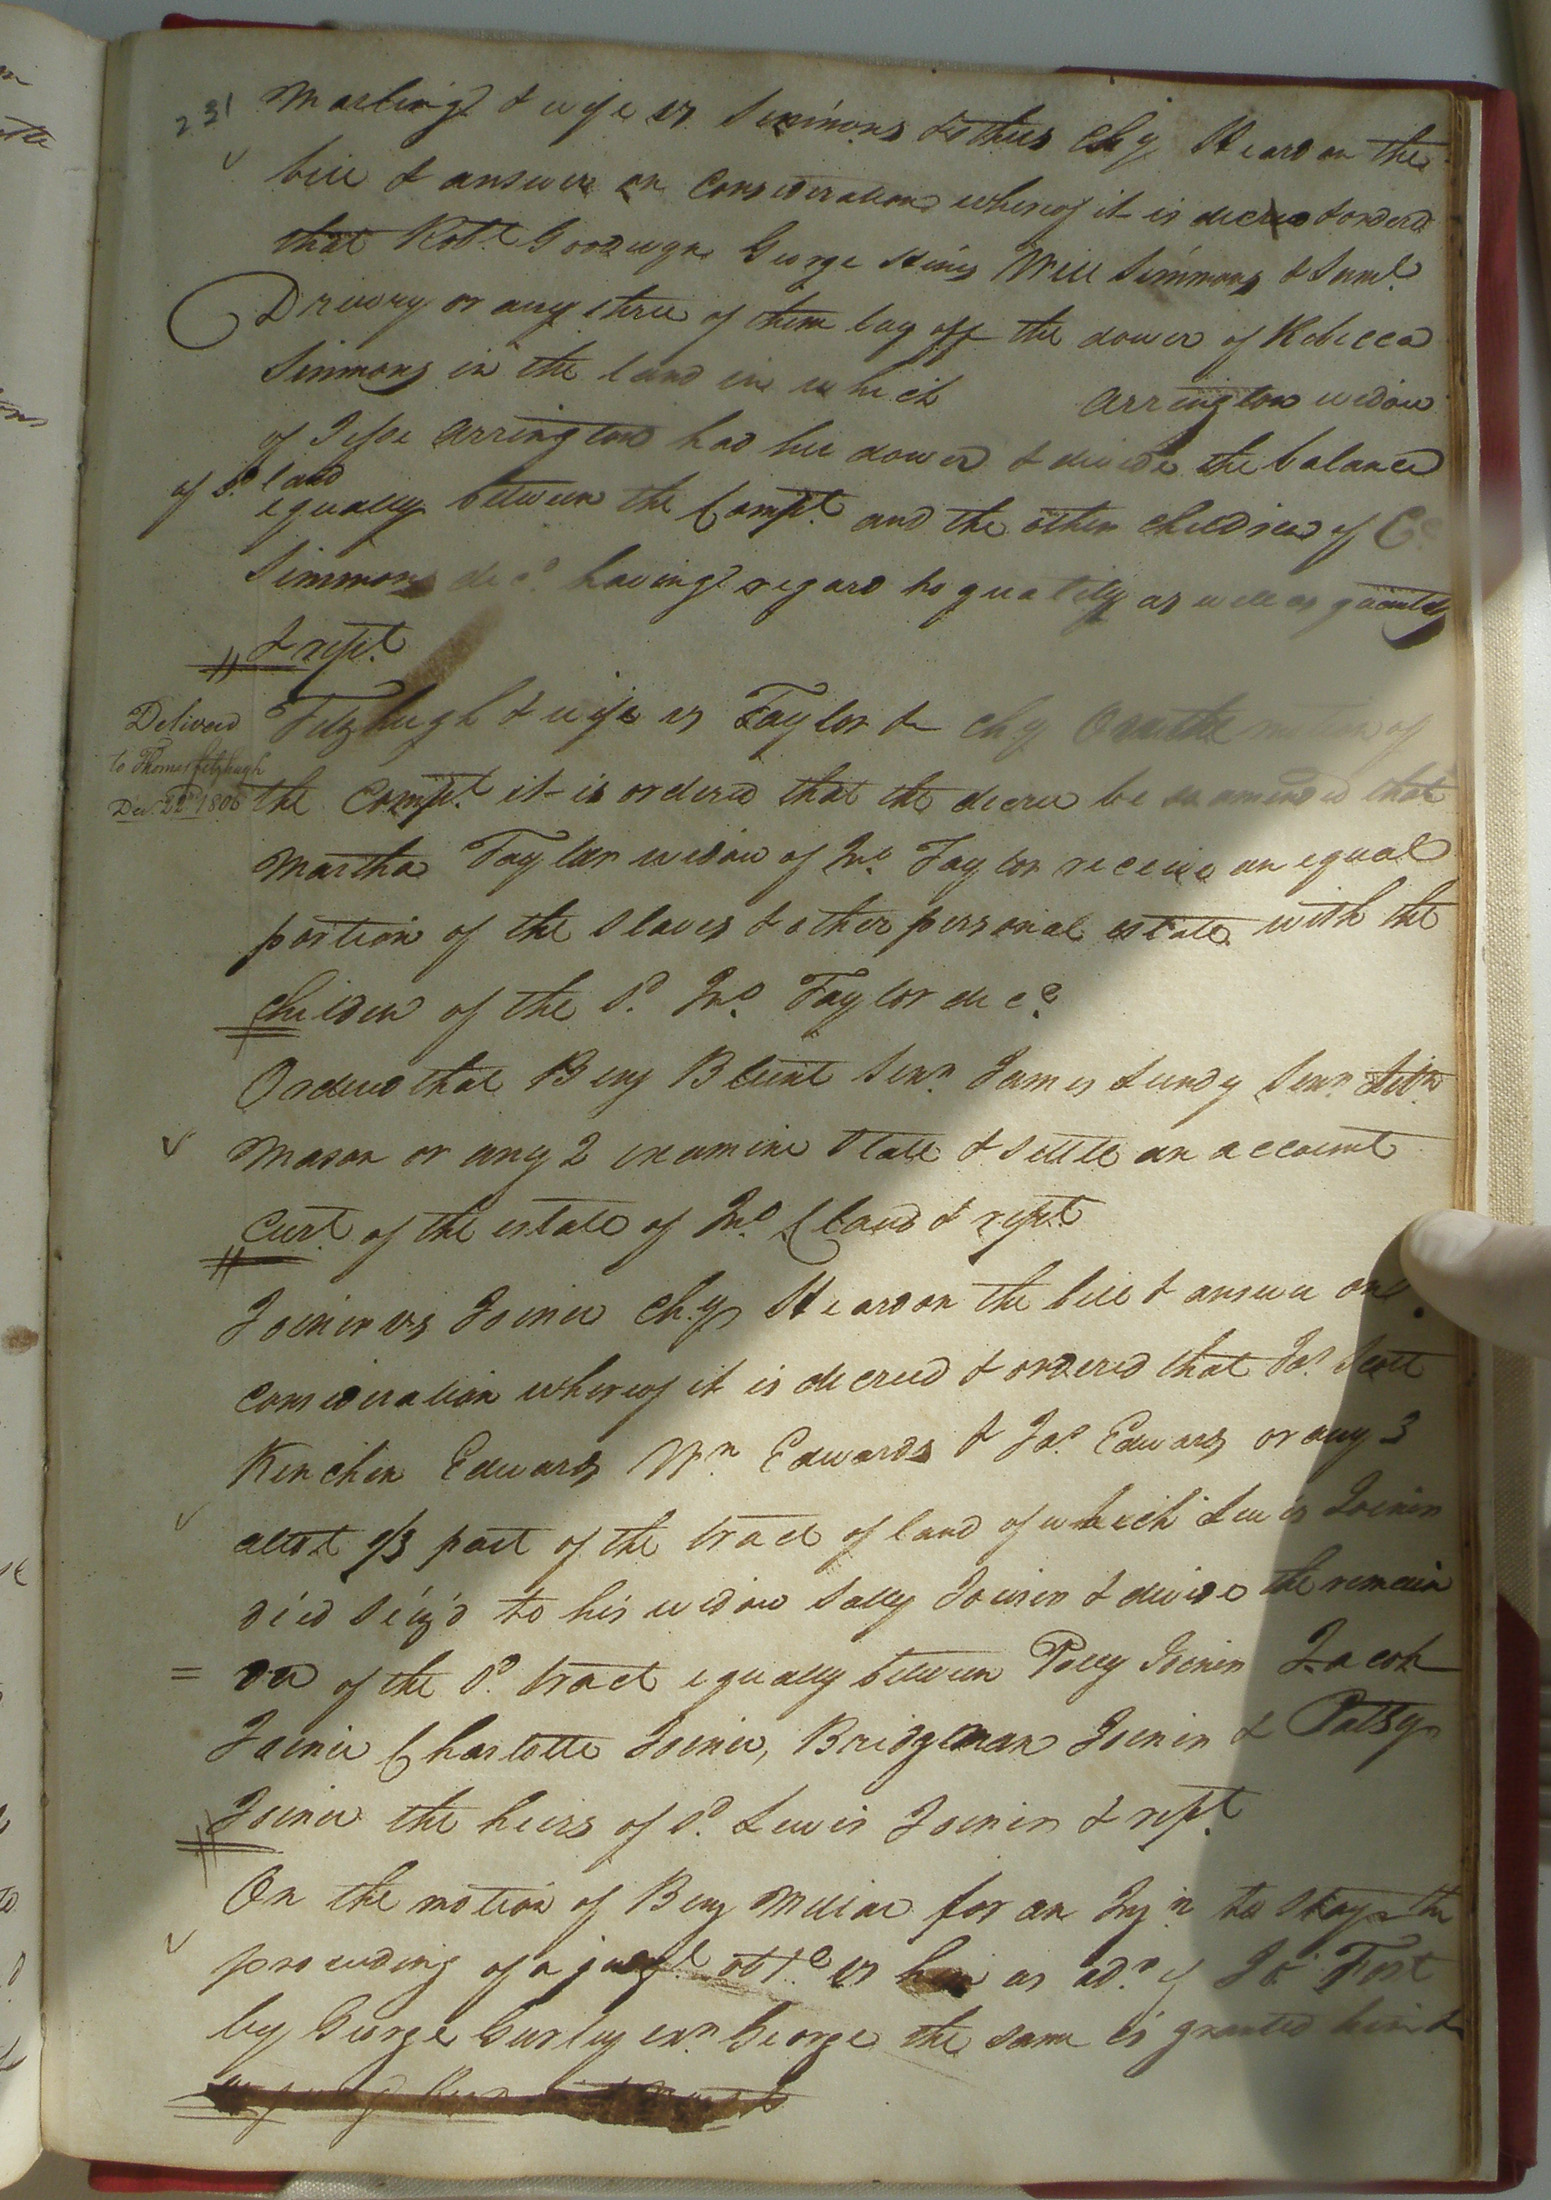 231
Marling & wife vs Simmons & others Chy Heard on the
bill & answer on consideration whereof it is decreed & ordered
that Robt. Goodwyn George Hines Will Simmons & Saml.
Drewry or any three of them lay off the dower of Rebecca
Simmons in the land in which Arrington widow
of Jesse Arrington had her dower & divide the balance
of sd. land
equally between the Complt. and the other children of
Simmons decd. having regard to quality as well as quantity
& rept.
Deliverd
to Thomas fitzhugh
Dec. 22d 1806
Fitzhugh & wife vs Taylor &c Chy On the motion of
the Complt. it is ordered that the decree be so amended that
Martha Taylor widow of Jno. Taylor receive an equal
portion of the slaves & other personal estate with the
children of the sd. Jno. Taylor decd.
Ordered that Benj Blunt Senr. James Lundy Senr. Littn.
Mason or any 2 examine state & settle an account
Curt. of the estate of Jno. Claud & rept.
Joiner vs Joiner Chy Heard on the bill & answer on
consideration whereof it is decreed & ordered that Jas. Scott
Kinchen Edwards Wm. Edwards & Jas. Edwards or any 3
allot 1/3 part of the tract of land of which Lewis Joiner
died seiz'd to his widow Sally Joiner & divide the remain
= der of the sd. tract equally between Polly Joiner Jacob
Joiner Charlotte Joiner, Bridgman Joiner & Patsy
Joiner the heirs of sd. Lewis Joiner & rept.
On the motion of Benj for an Injn. to stay the
proceeding of a judgt. obtd. vs him as adr. of Jo. Fort
by George Gurley exr. George the same is granted him